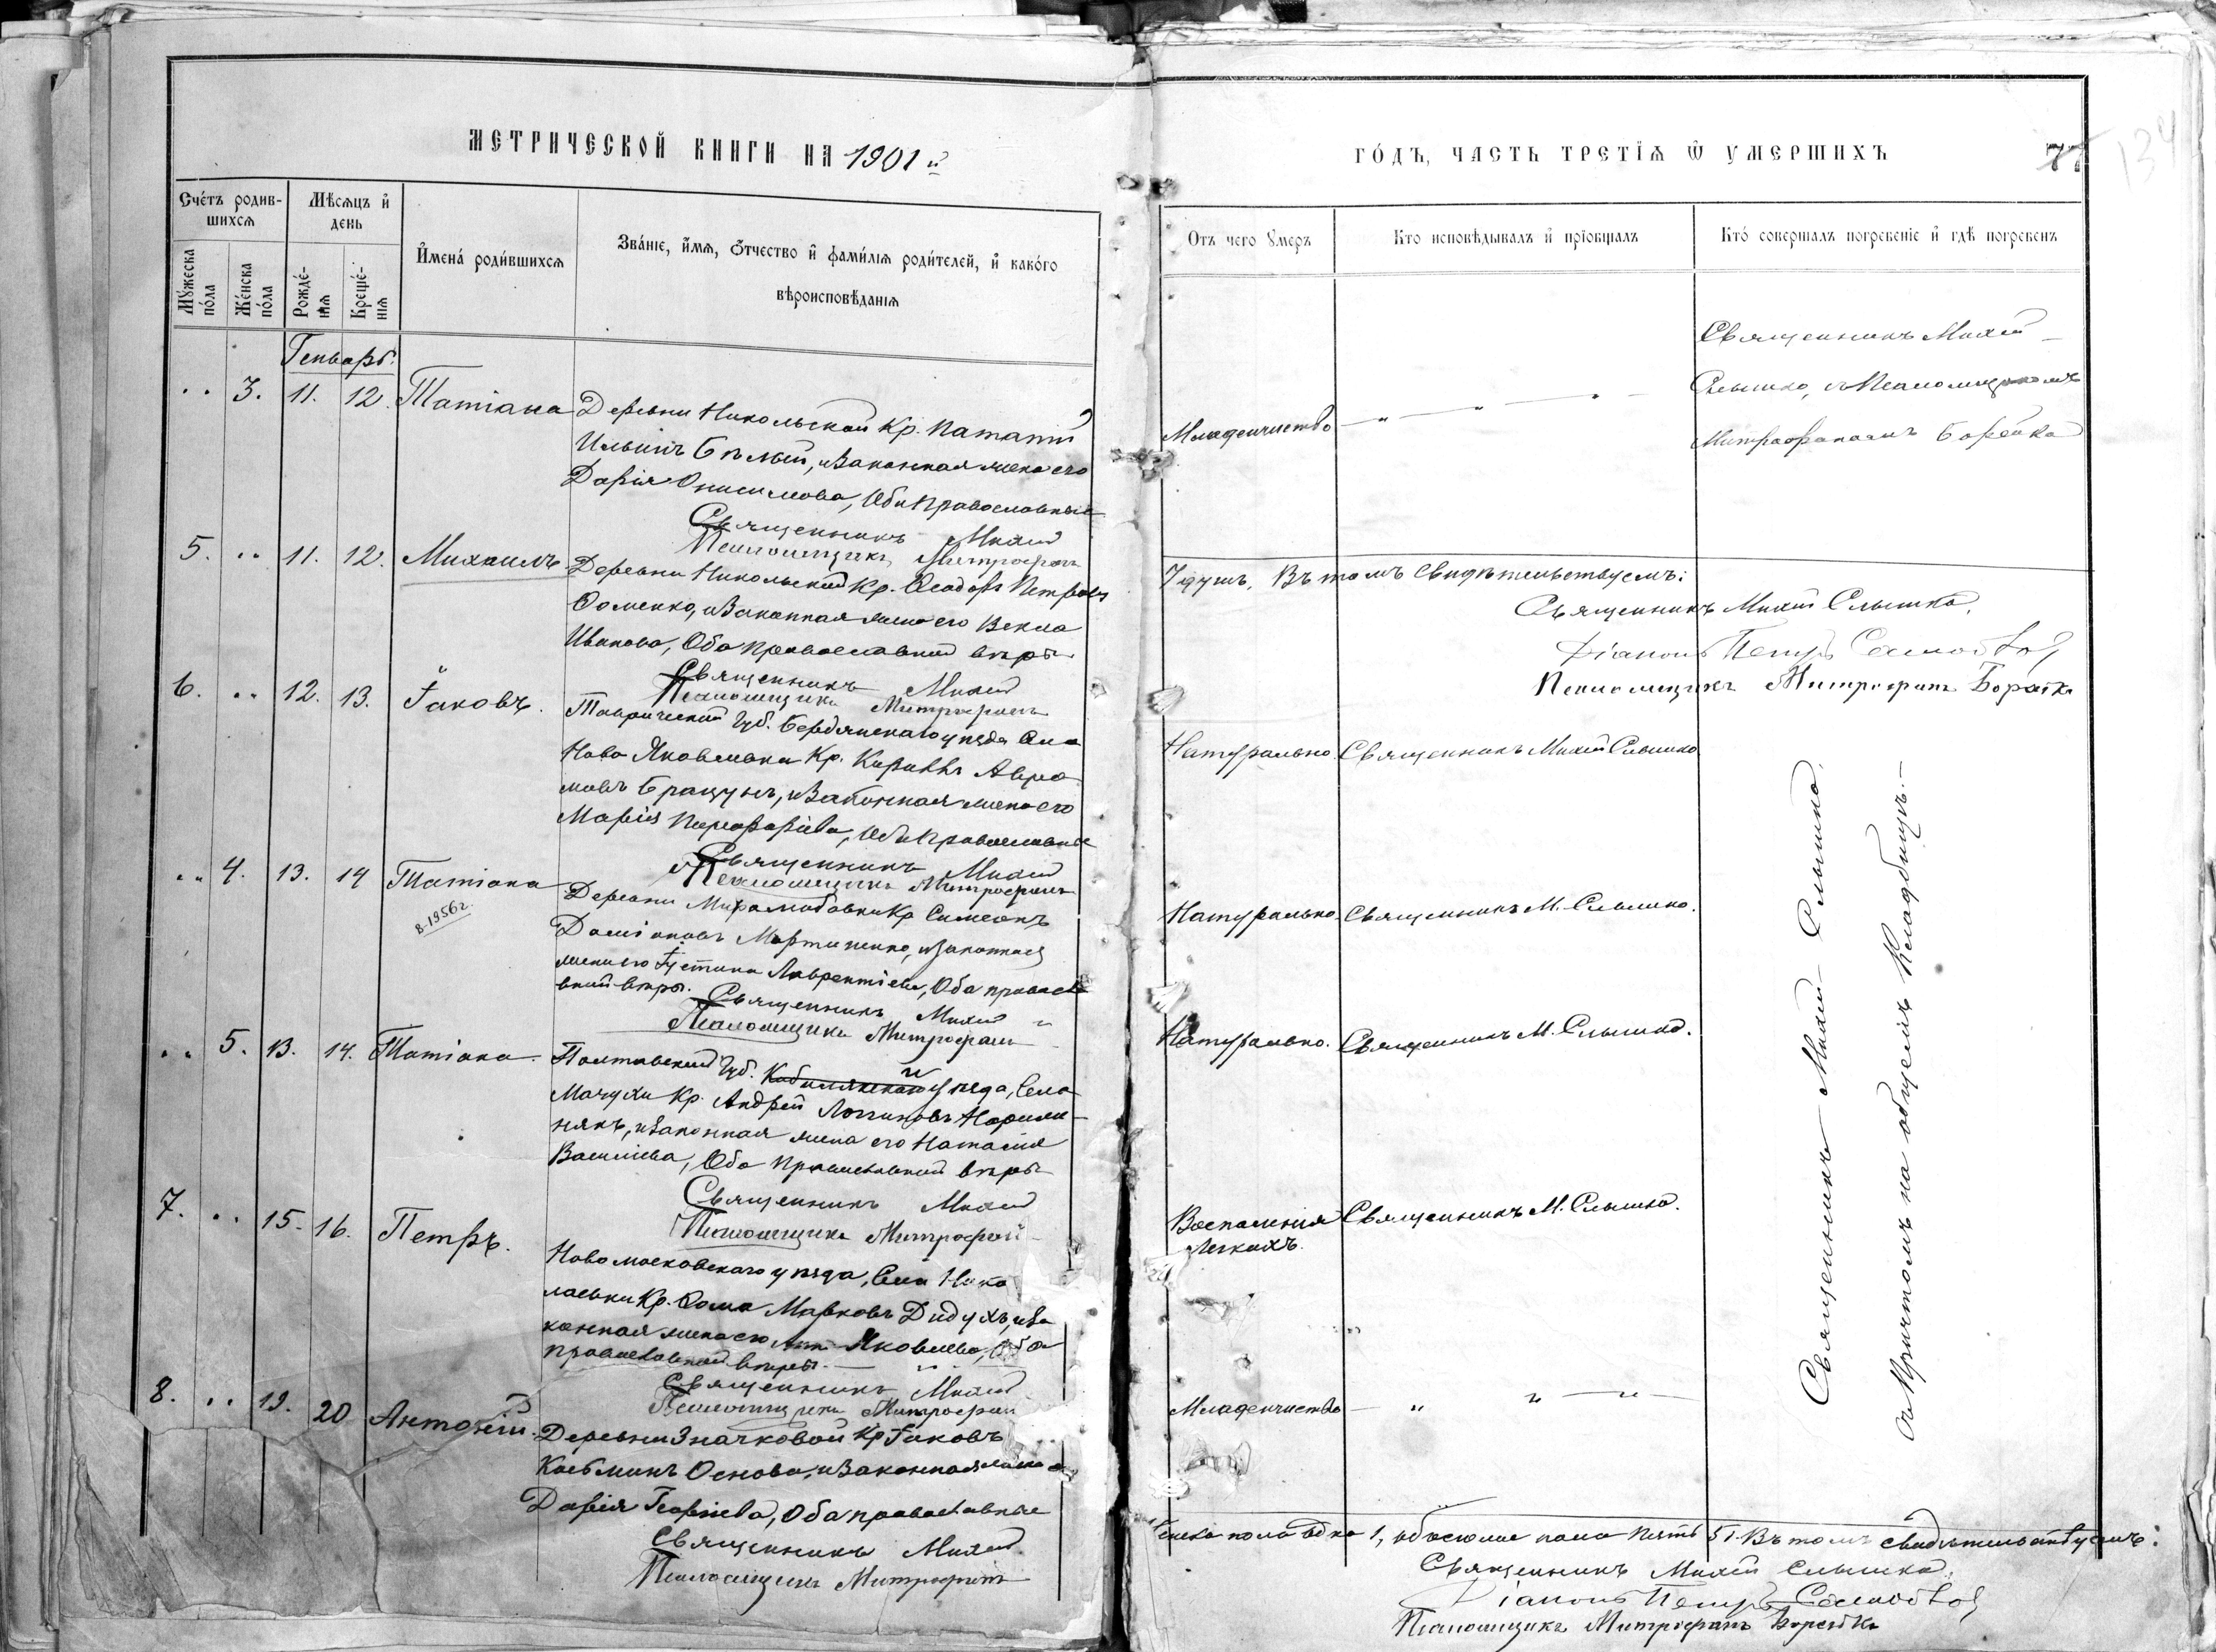 МЕТРИЧЕСКОЙ КНИГИ НА 1901 й
Счéтъ родив-
шихсѧ
Мѣсѧцъ и҆
день
Мꙋ́жеска
по́ла
Же́нска
по́ла
Рожде́-
нїѧ
Креще́-
нїѧ
И҆мена́ роди́вшихсѧ
Зва́нїе, и҆́мѧ, ѻ҆́тчество и҆ фами́лїѧ роди́телей, и҆ како́го
вѣроисповѣ́данїѧ
Генварь.
" 3. 11. 12. Татіана
Деревни Никольской Кр. Паталій
Ильинъ Бѣлый, и Законная жена его
Дарія Онисимова, Оба Православные
Священникъ Михей
Псаломщикъ Митрофанъ
5. " 11. 12. Михаилъ
Деревни Никольской Кр. Ѳеодоръ Петровъ
Ѳоменко, и Законная жена его Ѳекла
Иванова, Оба Православной вѣры
Священникъ Михей
Псаломщикъ Митрофанъ
6. " 12. 13. Іаковъ.
Таврической Губ. Бердянскаго уѣзда Села
Ново Яковлевки Кр. Кириллъ Авра
мовъ Брацунъ, и Законная жена его
Марія Парфиріева, Оба Православные
Священникъ Михей
Псаломщикъ Митрофанъ
" 4. 13. 14 Татіана
8-1956г.
Деревни Миролюбовки Кр Симеонъ
Даміановъ Мартиненко, и Законная
жена его Іустина Лаврентіева, Оба правосла
вной вѣры.
Священникъ Михей "
Псаломщикъ Митрофанъ
" 5. 13. 14. Татіана.
Полтавской Губ. Кобилякскаго уѣзда, Села
Мачухи Кр. Андрей Логиновъ
някъ, и Законная жена его Наталія
Василіева, Оба Православной вѣры
Священникъ Михей
Псаломщикъ Митрофанъ
7. " 15. 16. Петръ.
Новомосковскаго уѣзда, Села Нико
лаевки Кр. Ѳома Марковъ Дидухъ, и За
конная жена его Анна Яковлева, Оба
православной вѣры. — " —
Священникъ Михей
Псаломщикъ Митрофанъ
8. " 19. 20 Антоній.
Деревни Значковой Кр Іаковъ
Косьминъ Основа, и Законная жена его
Дарія Георгіева, Оба православные
Священникъ Михей
Псаломщикъ Митрофанъ
ГО́ДЪ, ЧАСТЬ ТРЕТЇѦ Ѿ УМЕРШИХЪ
77
134
Отъ чего ᲂу҆меръ
Кто исповѣдывалъ и҆ прїобщалъ
Кто́ совершалъ погребенїе и҆ гдѣ погребенъ
Младенчество — " — " — " —
Священникъ Михей
Слышко, съ Псаломщикомъ
Митрофаномъ Борейка
7 душъ. Въ томъ свидѣтельствуемъ:
Священникъ Михей Слышко.
Діаконъ Петръ
Псаломщикъ Митрофанъ Борейко
Натурально. Священникъ Михей Слышко
Натурально. Священникъ М. Слышко.
Натурально. Священникъ М. Слышко.
Воспаленія
Легкихъ.
Священникъ М. Слышко.
Младенчество — " " — " —
Священникъ Михей Слышко.
съ Причтомъ на общемъ Кладбищѣ. —
женска пола одна 1, обоего пола пять 5. Въ томъ свидѣтельствуемъ:
Священникъ Михей Слышко.
Діаконъ Петръ
Псаломщикъ Митрофанъ Борейко